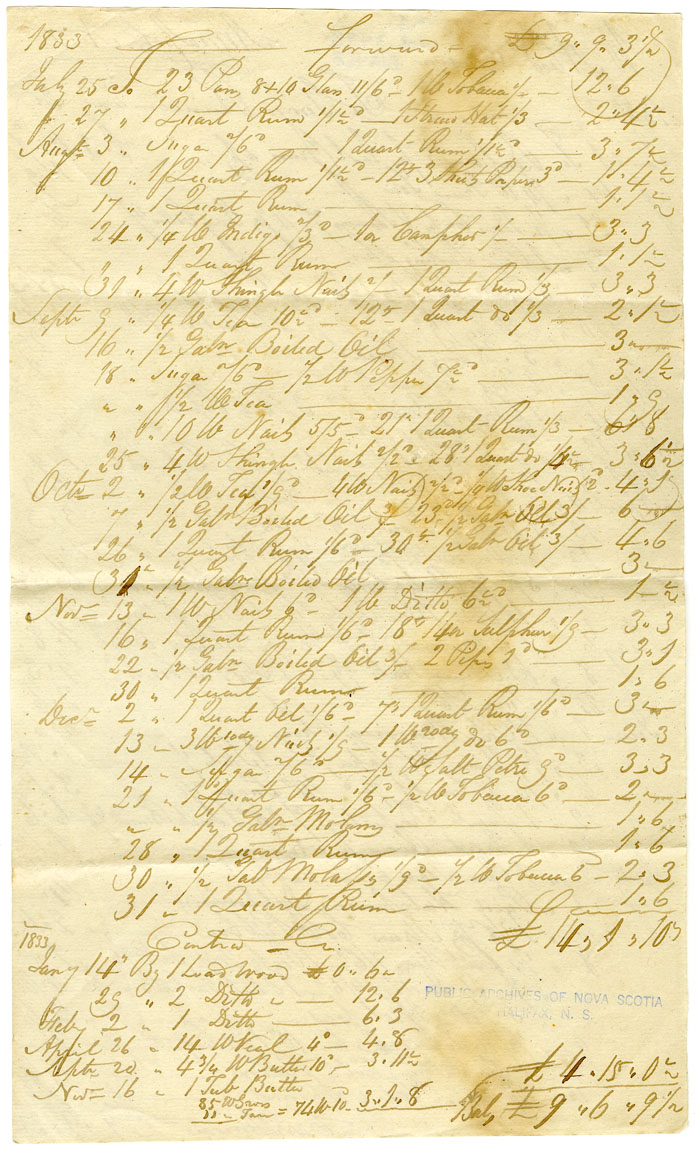 1833 forward £ 9 " 9 " 3 1/2
July 25 To 23 Pans 8+10 Glass 11/6d 1 lb Tobacco 1/ — 12 " 6
" 27 " 1 Quart Rum 1/1½d — 1 Straw Hat 1/3 — 2 " 4½
Augt 3 " Sugar 2/6d — 1 Quart Rum 1/1½d — 3 " 7½
10 " 1 Quart Rum 1/1½d — 12th 3 Papers 3d — 1 " 4½
17 " 1 Quart Rum — 1 " 1½
24 " 1/4 lb Indigo 2/3d — 1 oz Camphor 1/ — 3 " 3
" " 1 Quart Rum — 1 " 1½
31 " 4 lb Shingle Nails 2/ — 1 Quart Rum 1/3 — 3 " 3
Septr 9 " 1/4 lb Tea 10½d — 12th 1 Quart do 1/3 — 2 " 1½
16 " 1/2 Galn Boiled Oil — 3 "
18 " Sugar 2/6d — 1/2 lb Pepper 7½d — 3 " 1½
" " 1/2 lb Tea — 1 " 9
" " 10 lb Nails 5/5d 21st 1 Quart Rum 1/3 — 6 " 8
25 " 4 lb Shingle Nails 2/2d — 28th 1 Quart do 1/4½ — 3 " 6½
Octr 2 " 1/2 lb Tea 1/9d — 4 lb Nails 2/2d — lb Shoe Nails 2d — 4 " 1
" " 1/2 Galn Boiled Oil 3/ — 23rd 1/2 Galn Oil 3/ — 6 —
26 " 1 Quart Rum 1/6d — 30th 1/2 Galn Oil 3/ — 4 " 6
31 " 1/2 Galn Boiled Oil — 3 "
Novr 13 " 1 lb Nails 6d — 1 lb Ditto 6½d — 1 " ½
16 " 1 Quart Rum 1/6d 18th 14 oz Sulphur 1/9 — 3 " 3
22 " 1/2 Galn Boiled Oil 3/ — 2 Pipes 1d — 3 " 1
30 " 1 Quart Rum — 1 " 6
Decr 2 " 1 Quart Oil 1/6d — 7th 1 Quart Rum 1/6d — 3 "
13 " 3 lb 10dy Nails 1/9 — 1 lb 20dy do 6d — 2 " 3
14 " Sugar 2/6d — 1/2 lb Salt Petre 9d — 3 " 3
21 " 1 Quart Rum 1/6d 1/2 lb Tobacco 6d — 2 "
" " 1/2 Galn Molasses — 1 " 6
28 " 1 Quart Rum — 1 " 6
30 " 1/2 Gal Molasses 1/9d — 1/2 lb Tobacco 6 — 2 " 3
31 " 1 Quart Rum — 1 " 6
£ 14 " 1 " 10
1833 Contra — Cr.
Jany 14 " By 1 Load Wood £0 " 6 "
" 29 " 2 Ditto " — 12 " 6
Feby 2 " 1 Ditto — 6 " 3
April 26 " 14 lb Veal 4d — 4 " 8
Septr 20 " 4 3/4 lb Butter 10d — 3 " 11½
Novr 16 " 1 Tub Butter
85 lb Gross
11 " Tare = 74 lb 10d 3 " 1 " 8
£ 4 " 15 " 0½
Baln £ 9 " 6 " 9½
PUBLIC ARCHIVES OF NOVA SCOTIA
HALIFAX, N. S.